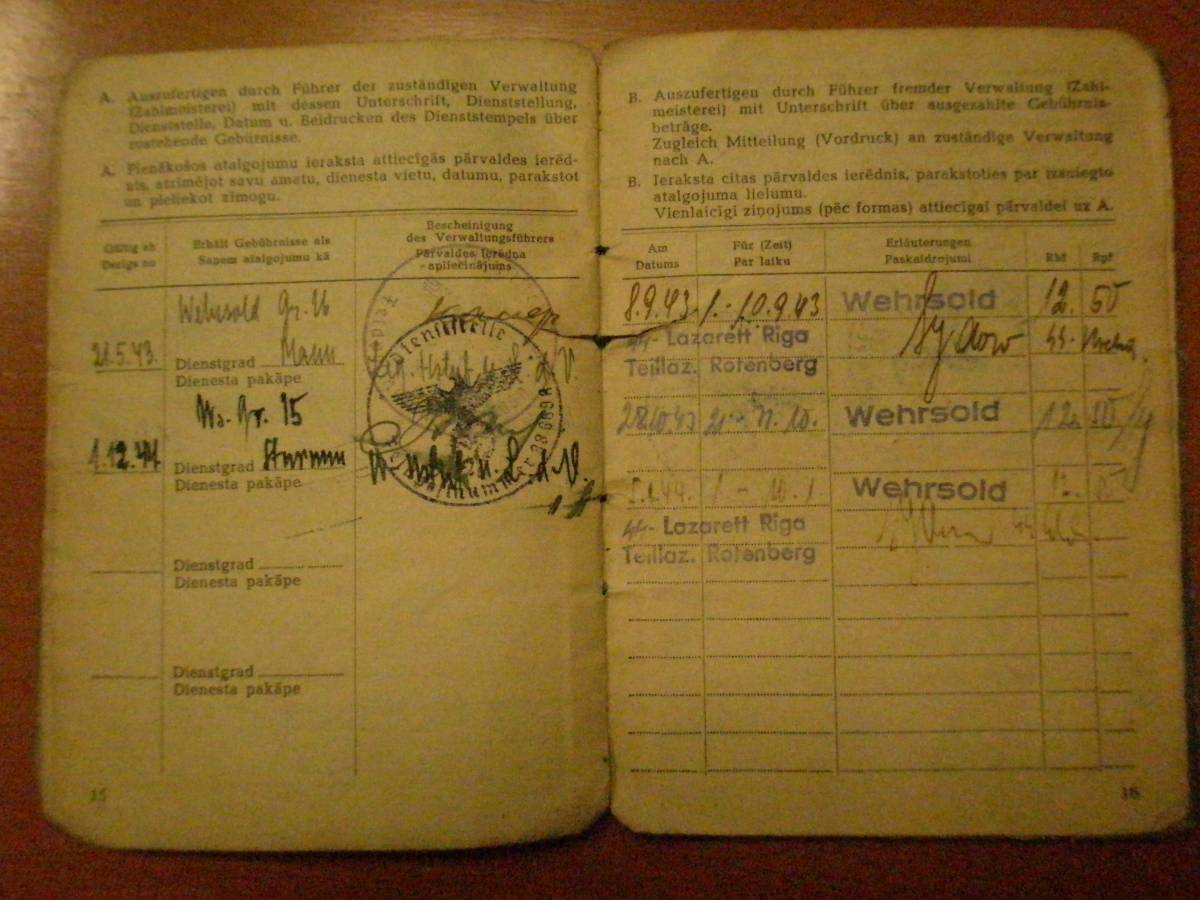 A. Auszufertigen durch Führer der zuständigen Verwaltung
(Zahlmeisterei) mit dessen Unterschrift, Dienststellung,
Dienststelle, Datum u. Beidrucken des Dienststempels über
zustehende Gebürnisse.
A. Pienākošos atalgojumu ieraksta attiecīgās pārvaldes ierēd-
nis, atzīmējot savu amatu, dienesta vietu, datumu, parakstot
un pieliekot zīmogu.
Gültig ab
Derīgs no
Erhält Gebührnisse als
Saņem atalgojumu kā
Bescheinigung
des Verwaltungsführers
Pārvaldes ierēdņa
apliecinājums
Wehrsold Gr. 16
21.5.43.
Dienstgrad Mann
Dienesta pakāpe
Ws. Gr. 15
1.12.44
Dienstgrad Sturmm
Dienesta pakāpe
Dienststelle
Dienstgrad
Dienesta pakāpe
Dienstgrad
Dienesta pakāpe
15
B. Auszufertigen durch Führer fremder Verwaltung (Zahl-
meisterei) mit Unterschrift über ausgezahlte Gebührnis-
beträge.
Zugleich Mitteilung (Vordruck) an zuständige Verwaltung
nach A.
B. Ieraksta citas pārvaldes ierēdnis, parakstoties par izsniegto
atalgojuma lielumu.
Vienlaicīgi ziņojums (pēc formas) attiecīgai pārvaldei uz A.
Am
Datums
Für (Zeit)
Par laiku
Erläuterungen
Paskaidrojumi
RM
Rpf
8.9.43 1.-10.9.43 Wehrsold 12. 50
Lazarett Riga
Teillaz. Rotenberg
28.10.43 Wehrsold 12. 50
Wehrsold
Lazarett Riga
Teillaz. Rotenberg
16